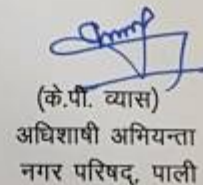 (के.पी. व्यास)
अधिशाषी अभियन्ता
नगर परिषद्, पाली